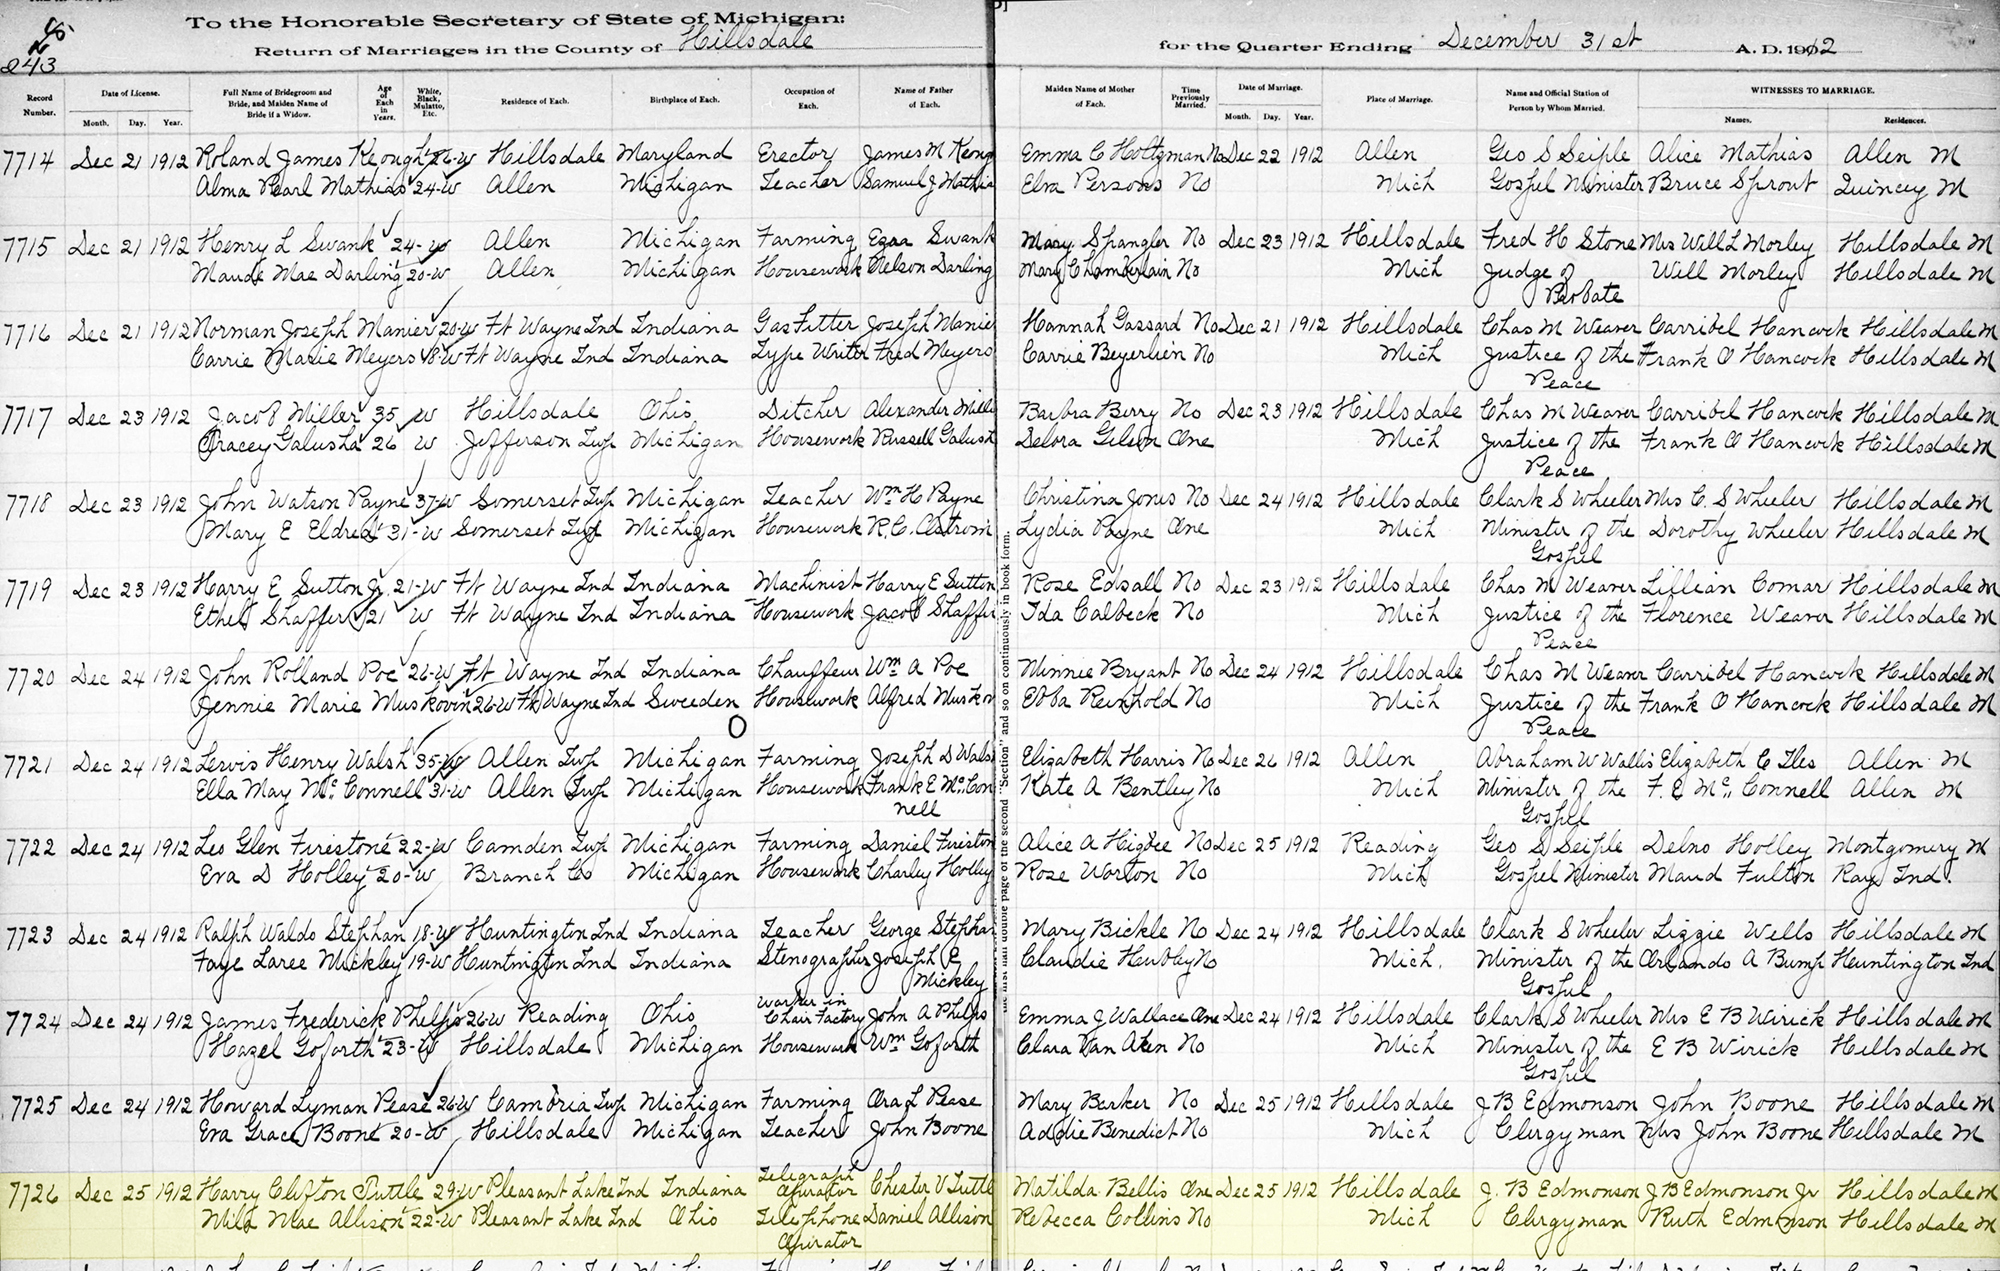 To the Honorable Secretary of State of Michigan:
Return of Marriages in the County of Hillsdale
for the Quarter Ending December 31st A. D. 1912
243
Record Number. Date of License. Month. Day. Year. Full Name of Bridegroom and Bride, and Maiden Name of Bride if a Widow. Age of Each in Years. White, Black, Mulatto, Etc. Residence of Each. Birthplace of Each. Occupation of Each. Name of Father of Each. Maiden Name of Mother of Each. Time Previously Married. Date of Marriage. Month. Day. Year. Place of Marriage. Name and Official Station of Person by Whom Married. WITNESSES TO MARRIAGE. Names. Residences.
7714 Dec 21 1912 Roland James Keough 26-W Hillsdale Maryland Erector James M Keoug Emma C Holtzman No Dec 22 1912 Allen Geo S Seiple Alice Mathias Allen M
Alma Pearl Mathias 24-W Allen Michigan Teacher Samuel J Mathia Elva Persons No Mich Gospel Minister Bruce Sprout Quincey M
7715 Dec 21 1912 Henry L Swank 24-W Allen Michigan Farming Ezra Swank Mary Spangler No Dec 23 1912 Hillsdale Fred H Stone Mrs Will L Morley Hillsdale M
Maude Mae Darling 20-W Allen Michigan Housework Nelson Darling Mary Chamberlain No Mich Judge of Will Morley Hillsdale M
Probate
7716 Dec 21 1912 Norman Joseph Manier 20-W Ft Wayne Ind Indiana Gas Fitter Joseph Manier Hannah Gassard No Dec 21 1912 Hillsdale Chas M Weaver Carribel Hancock Hillsdale M
Carrie Marie Meyers 18-W Ft Wayne Ind Indiana Type Writer Fred Meyers Carrie Beyerlein No Mich Justice of the Frank O Hancock Hillsdale M
Peace
7717 Dec 23 1912 Jacob Miller 35 W Hillsdale Ohio Ditcher Alexander Mille Barbra Berry No Dec 23 1912 Hillsdale Chas M Weaver Carribel Hancock Hillsdale M
Tracey Galusha 26 W Jefferson Twp Michigan Housework Russell Galush Delora Gilson One Mich Justice of the Frank O Hancock Hillsdale M
Peace
7718 Dec 23 1912 John Watson Payne 37-W Somerset Twp Michigan Teacher Wm H Payne Christina Jones No Dec 24 1912 Hillsdale Clark S Wheeler Mrs C. S Wheeler Hillsdale M
Mary E Eldred 31-W Somerset Twp Michigan Housework R. C. Olstrom Lydia Payne One Mich Minister of the Dorothy Wheeler Hillsdale M
Gospel
7719 Dec 23 1912 Harry E Sutton Jr. 21-W Ft Wayne Ind Indiana Machinist Harry E Sutton Rose Edsall No Dec 23 1912 Hillsdale Chas M Weaver Lillian Comar Hillsdale M
Ethel Shaffer 21 W Ft Wayne Ind Indiana Housework Jacob Shaffer Ida Calbeck No Mich Justice of the Florence Weaver Hillsdale M
Peace
7720 Dec 24 1912 John Rolland Poe 26-W Ft Wayne Ind Indiana Chauffeur Wm A Poe Minnie Bryant No Dec 24 1912 Hillsdale Chas M Weaver Carribel Hancock Hillsdale M
Jennie Marie Muskovin 26-W Ft Wayne Ind Sweeden Housework Alfred Muskov Ebba Reinhold No Mich Justice of the Frank O Hancock Hillsdale M
Peace
7721 Dec 24 1912 Lewis Henry Walsh 35-W Allen Twp Michigan Farming Joseph D Walsh Elizabeth Harris No Dec 26 1912 Allen Abraham W Wallis Elizabeth C Iles Allen M
Ella May McConnell 31-W Allen Twp Michigan Housework Frank E McCon Kate A Bentley No Mich Minister of the F. E McConnell Allen M
nell Gospel
7722 Dec 24 1912 Leo Glen Firestone 22-W Camden Twp Michigan Farming Daniel Fireston Alice A Higbee No Dec 25 1912 Reading Geo S Seiple Delno Holley Montgomery M
Eva D Holley 20-W Branch Co Michigan Housework Charley Holley Rose Worton No Mich Gospel Minister Maud Fulton Ray Ind.
7723 Dec 24 1912 Ralph Waldo Stephan 18-W Huntington Ind Indiana Teacher George Stephan Mary Bickle No Dec 24 1912 Hillsdale Clark S Wheeler Lizzie Wells Hillsdale M
Faye Laree Mickley 19-W Huntington Ind Indiana Stenographer Joseph E Claudie Heubley No Mich. Minister of the Orlando A Bump Huntington Ind
Mickley Gospel
7724 Dec 24 1912 James Frederick Phelps 26W Reading Ohio Worker in Chair Factory John A Phelps Emma J Wallace One Dec 24 1912 Hillsdale Clark S Wheeler Mrs E B Wirick Hillsdale M
Hazel Goforth 23-W Hillsdale Michigan Housework Wm Goforth Clara Van Aken No Mich Minister of the E B Wirick Hillsdale M
Gospel
7725 Dec 24 1912 Howard Lyman Pease 26W Cambria Twp Michigan Farming Ora L Pease Mary Barker No Dec 25 1912 Hillsdale J B Edmonson John Boone Hillsdale M
Eva Grace Boone 20-W Hillsdale Michigan Teacher John Boone Addie Benedict No Mich Clergyman Mrs John Boone Hillsdale M
7726 Dec 25 1912 Harry Clifton Tuttle 29-W Pleasant Lake Ind Indiana Telegraph Operator Chester V Tuttle Matilda Bellis One Dec 25 1912 Hillsdale J. B Edmonson J B Edmonson Jr Hillsdale M
Mild Mae Allison 22-W Pleasant Lake Ind Ohio Telephone Operator Daniel Allison Rebecca Collins No Mich Clergyman Ruth Edmonson Hillsdale M